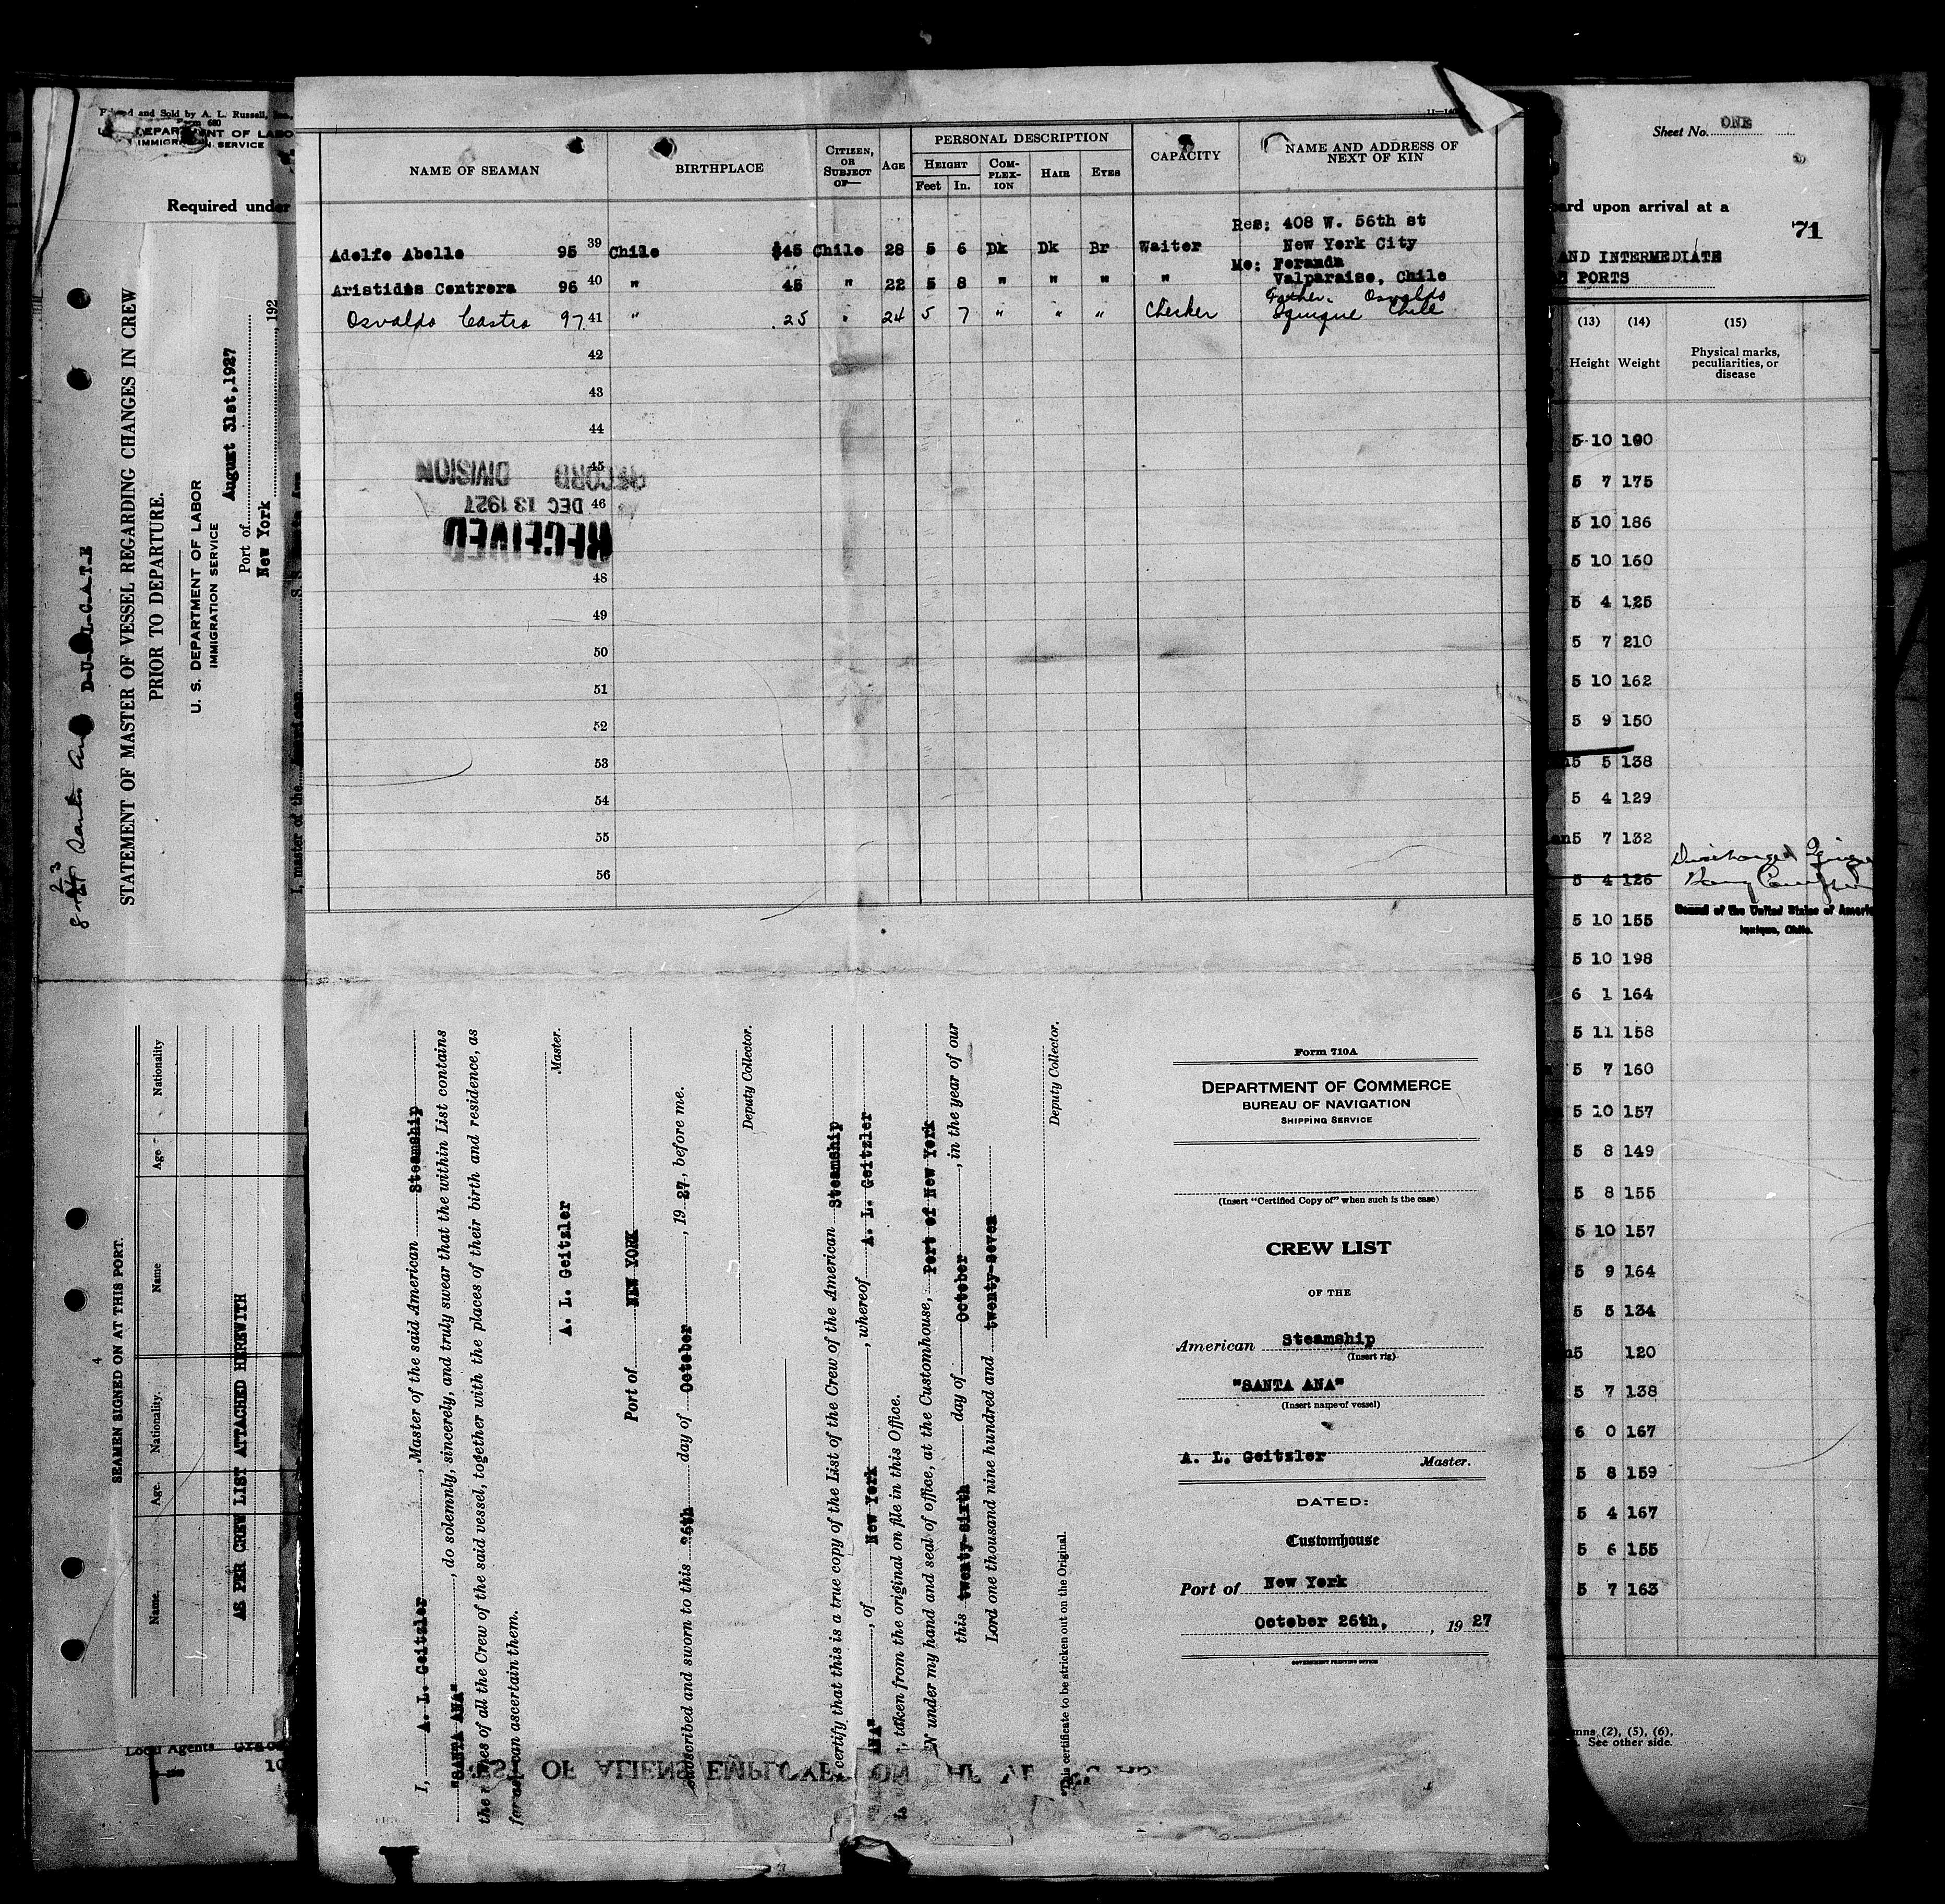 and Sold by A. L. Russell, Inc.
Form 680
DEPARTMENT OF LABO
IMMIGRATION SERVICE
Required under
8 23 Santa Ana
STATEMENT OF MASTER OF VESSEL REGARDING CHANGES IN CREW
PRIOR TO DEPARTURE.
U. S. DEPARTMENT OF LABOR
IMMIGRATION SERVICE
August 31st, 1927
Port of
New York , 192
I, master of the American S. S.
4
SEAMEN SIGNED ON AT THIS PORT.
Name. Age. Nationality. Name Age Nationality
AS PER CREW LIST ATTACHED HEREWITH
Local Agents Grace
10
NAME OF SEAMAN BIRTHPLACE CITIZEN, OR SUBJECT OF— AGE PERSONAL DESCRIPTION CAPACITY NAME AND ADDRESS OF NEXT OF KIN
HEIGHT COM-PLEX-ION HAIR EYES
Feet In.
Res: 408 W. 56th st
Adolfo Abello 95 39 Chile $45 Chile 28 5 6 Dk Dk Br Waiter New York City
Mo: Feranda
Aristidis Contrera 96 40 " 45 " 22 5 8 " " " " Valparaiso, Chile
Father. Osvaldo
Osvaldo Castro 97 41 " 25 " 24 5 7 " " " Checker Iquique Chile
42
43
44
45
RECORD DIVISION
46
DEC 13 1927
RECEIVED
48
49
50
51
52
53
54
55
56
I, A. L. Geitzler , Master of the said American Steamship
"SANTA ANA" , do solemnly, sincerely, and truly swear that the within List contains
the names of all the Crew of the said vessel, together with the places of their birth and residence, as
far as I can ascertain them.
A. L. Geitzler Master.
Port of NEW YORK
Subscribed and sworn to this 26th day of October , 19 27, before me.
Deputy Collector.
certify that this is a true copy of the List of the Crew of the American Steamship
ANA" , of New York , whereof A. L. Geitzler
is , taken from the original on file in this Office.
under my hand and seal of office, at the Customhouse, Port of New York
this twenty-sixth day of October , in the year of our
Lord one thousand nine hundred and twenty-seven
Deputy Collector.
*This certificate to be stricken out on the Original.
Form 710A
DEPARTMENT OF COMMERCE
BUREAU OF NAVIGATION
SHIPPING SERVICE
(Insert "Certified Copy of" when such is the case)
CREW LIST
OF THE
American Steamship
(Insert rig)
"SANTA ANA"
(Insert name of vessel)
A. L. Geitzler Master.
DATED:
Customhouse
Port of New York
October 26th, , 19 27
GOVERNMENT PRINTING OFFICE
LIST OF ALIENS EMPLOYED ON THE
Sheet No. ONE
ard upon arrival at a
71
AND INTERMEDIATE
PORTS
(13) (14) (15)
Height Weight Physical marks, peculiarities, or disease
5 10 190
5 7 175
5 10 186
5 10 160
5 4 125
5 7 210
5 10 162
5 9 150
5 5 138
5 4 129
5 7 132
Discharged
5 4 126
5 10 155 Consul of the United States of Americ
Iquique, Chile.
5 10 198
6 1 164
5 11 158
5 7 160
5 10 157
5 8 149
5 8 155
5 10 157
5 9 164
5 5 134
5 120
5 7 138
6 0 167
5 8 159
5 4 167
5 6 155
5 7 163
mns (2), (5), (6).
See other side.